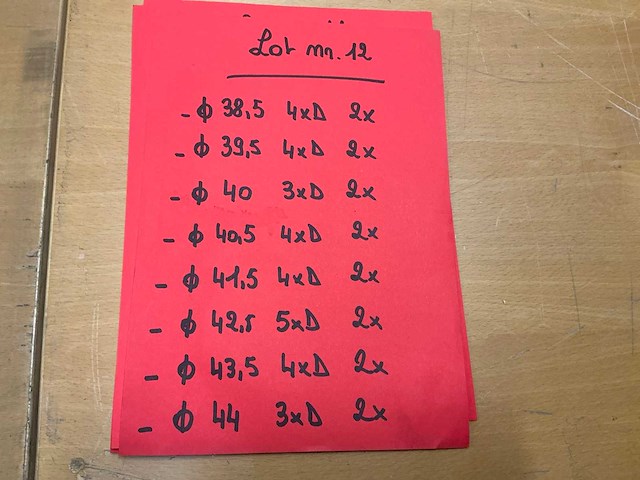 Lot nr. 12
- ϕ 38,5 4xD 2x
- ϕ 39,5 4xD 2x
- ϕ 40 3xD 2x
- ϕ 40,5 4xD 2x
- ϕ 41,5 4xD 2x
- ϕ 42,5 5xD 2x
- ϕ 43,5 4xD 2x
- ϕ 44 3xD 2x